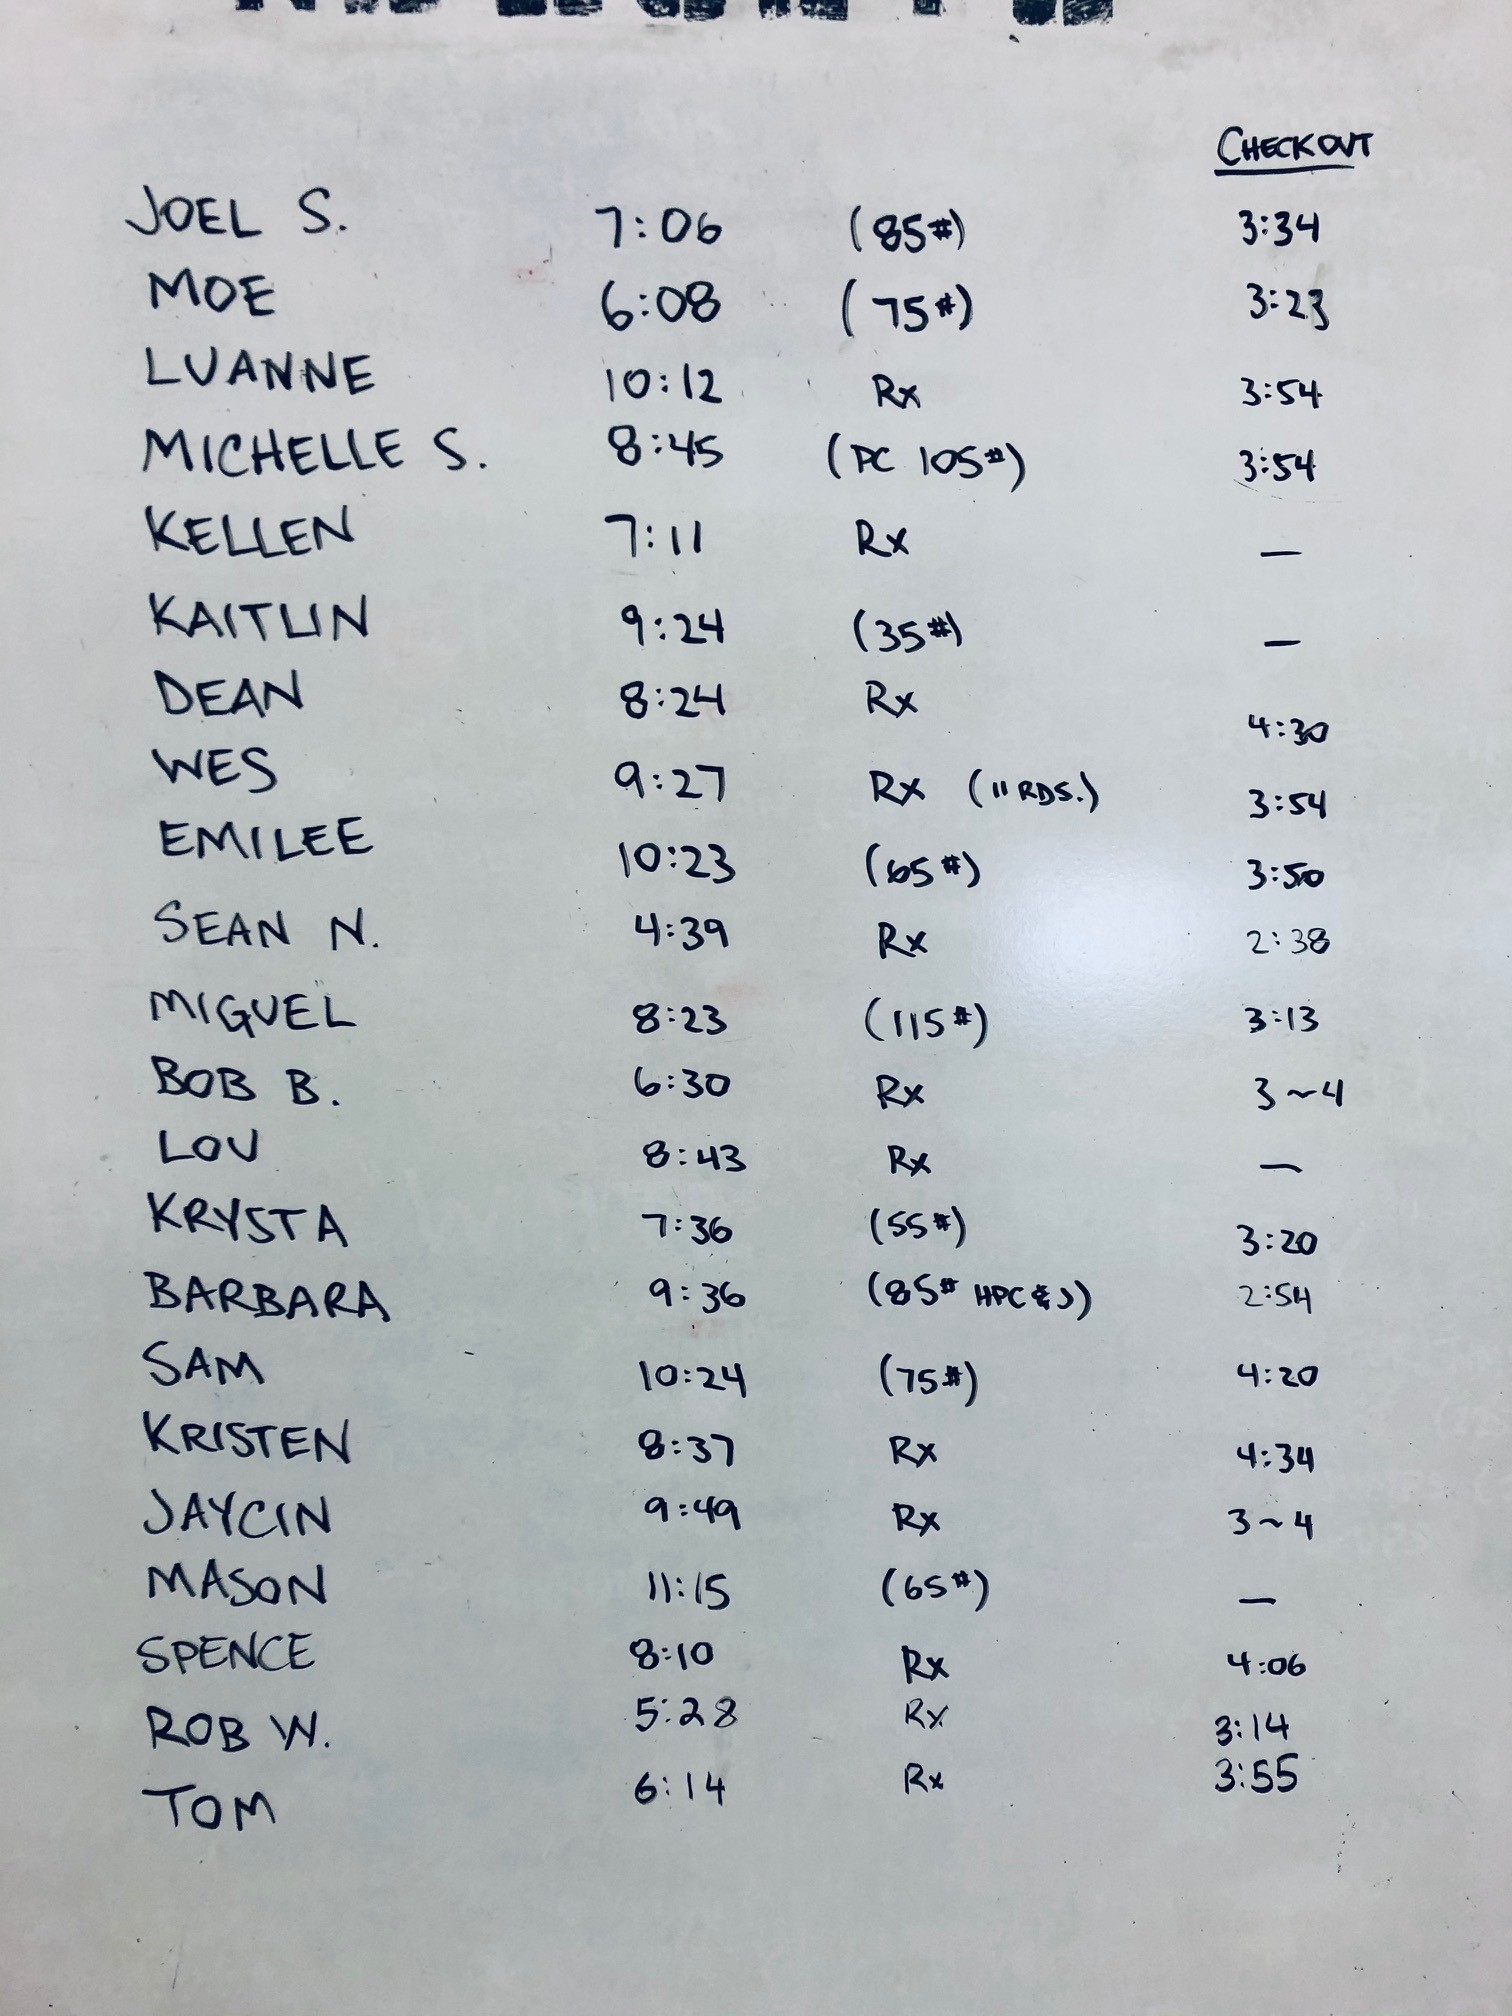 CHECKOUT
JOEL S. 7:06 (85#) 3:34
MOE 6:08 (75#) 3:23
LUANNE 10:12 Rx 3:54
MICHELLE S. 8:45 (PC 105#) 3:54
KELLEN 7:11 Rx —
KAITLIN 9:24 (35#) —
DEAN 8:24 Rx 4:30
WES 9:27 Rx (11 RDS.) 3:54
EMILEE 10:23 (65#) 3:50
SEAN N. 4:39 Rx 2:38
MIGUEL 8:23 (115#) 3:13
BOB B. 6:30 Rx 3~4
LOU 8:43 Rx —
KRYSTA 7:36 (55#) 3:20
BARBARA 9:36 (85# HPC & J) 2:54
SAM 10:24 (75#) 4:20
KRISTEN 8:37 Rx 4:34
JAYCIN 9:49 Rx 3~4
MASON 11:15 (65#) —
SPENCE 8:10 Rx 4:06
ROB W. 5:28 Rx 3:14
TOM 6:14 Rx 3:55